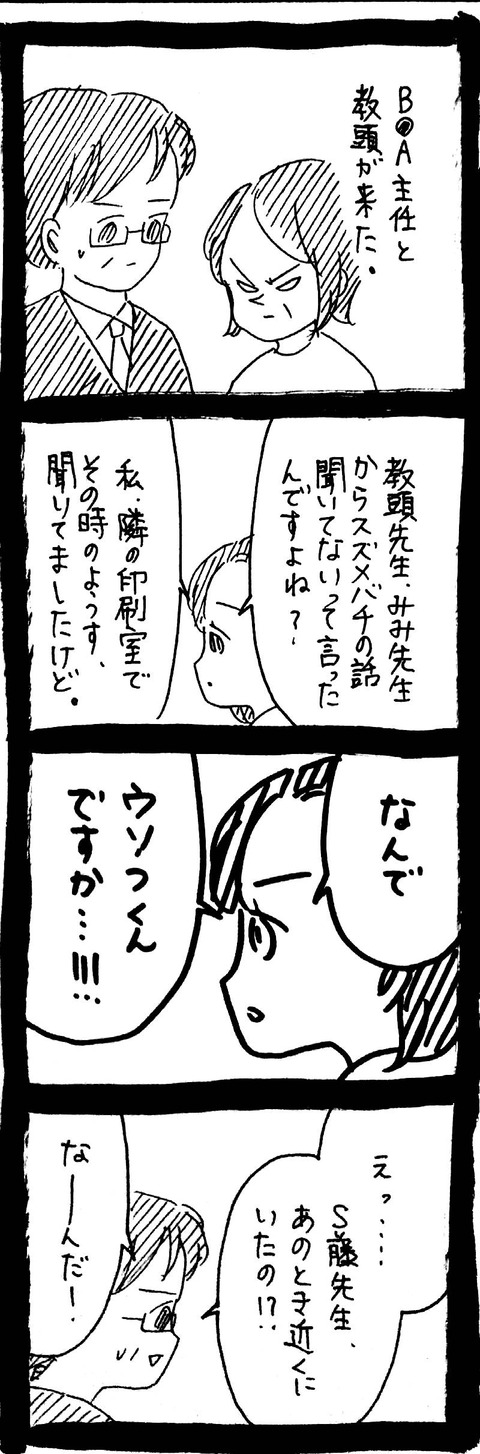 B●A主任と
教頭が来た。
教頭先生、みみ先生
からスズメバチの話
聞いてないって言った
んですよね？
私、隣の印刷室で
その時のようす、
聞いてましたけど。
なんで
ウソつくん
ですか…!!!
えっ……
S藤先生、
あのとき近くに
いたの!?
なーんだ！